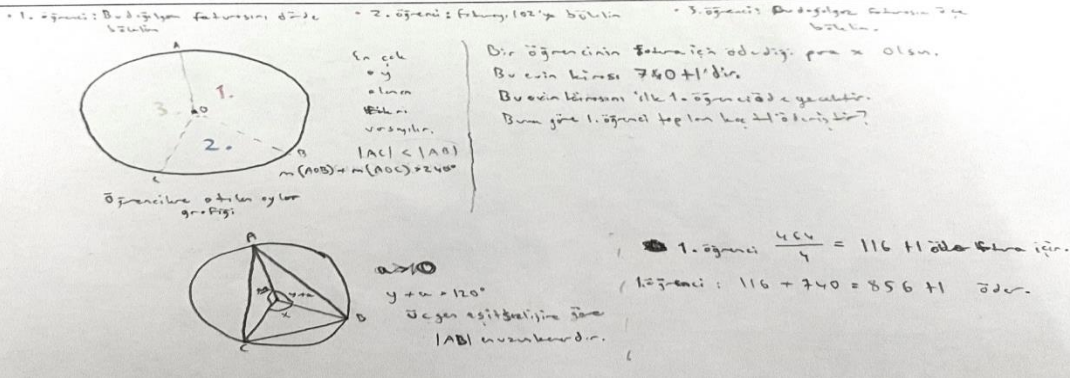 • 1. öğrenci: Bu doğalgaz faturasını dörde bölelim
• 2. öğrenci: Faturayı 102'ye bölelim
• 3. öğrenci: Bu doğalgaz faturasın üçe bölelim.
A
3. O 1.
2.
B
C
En çok
oy
alanın
fikri
varsayılır.
|AC| < |AB|
m(AOB) + m(AOC) = 240°
Öğrencilere atılan oylar
grafiği
Bir öğrencinin fatura için ödediği para x olsun.
Bu evin kirası 740 tl'dir.
Bu evin kirasını ilk 1. öğrenci ödeyecektir.
Buna göre 1. öğrenci toplam kaç tl ödemiştir?
A
y+a
x
B
C
a>0
y+a=120°
Üçgen eşitsizliğine göre
|AB| en uzun kenardır.
1. öğrenci 464/4 = 116 tl öder fatura için.
1. öğrenci: 116 + 740 = 856 tl öder.